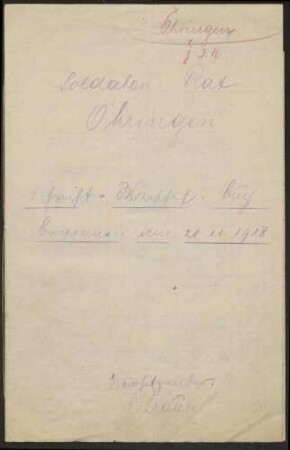 Öhringen
Soldaten Rat
Öhringen
Schrift-Wechsel-Buch
Begonnen am 20.11.1918
Vorsitzender